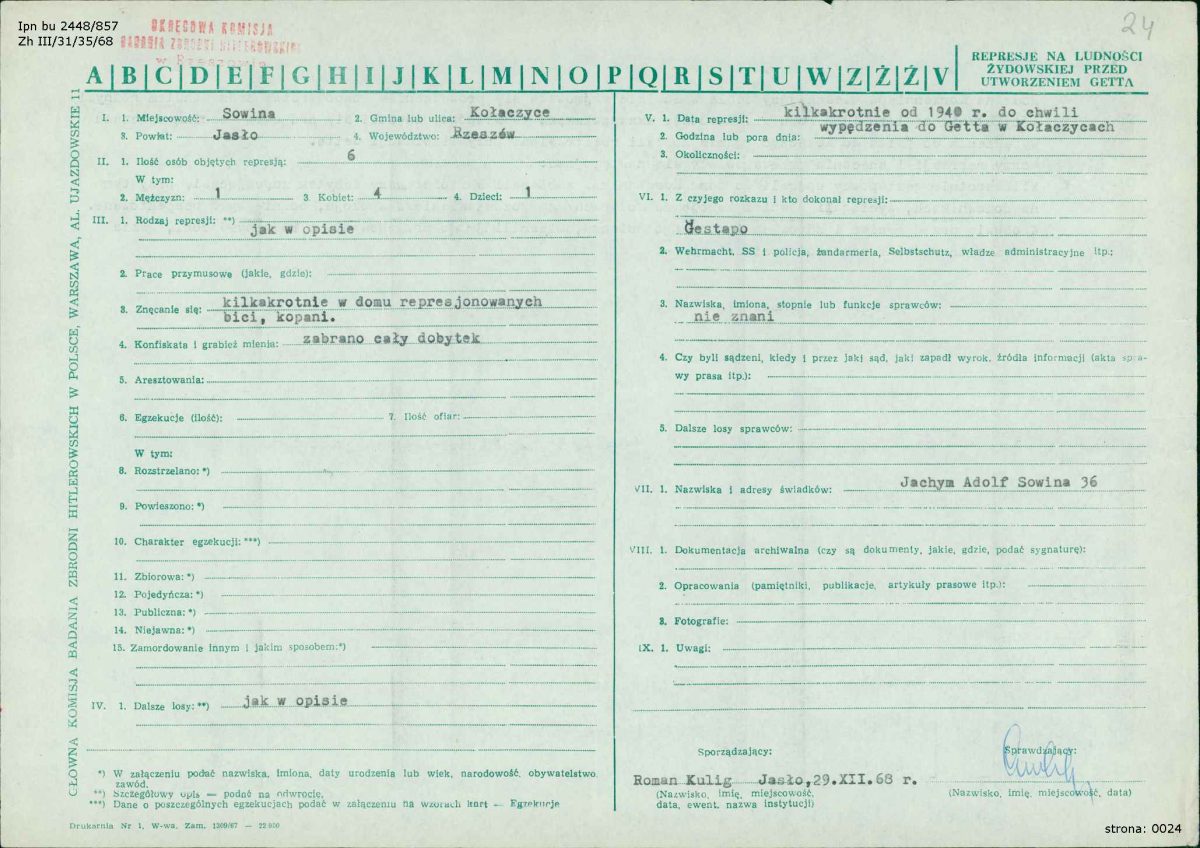 Ipn bu 2448/857
Zh III/31/35/68
OKRĘGOWA KOMISJA
BADANIA ZBRODNI HITLEROWSKICH
w Rzeszowie
24
A B C D E F G H I J K L M N O P Q R S T U W Z Ż Ź V
REPRESJE NA LUDNOŚCI
ŻYDOWSKIEJ PRZED
UTWORZENIEM GETTA
GŁÓWNA KOMISJA BADANIA ZBRODNI HITLEROWSKICH W POLSCE, WARSZAWA, AL. UJAZDOWSKIE 11
I. 1. Miejscowość: Sowina 2. Gmina lub ulica: Kołaczyce
3. Powiat: Jasło 4. Województwo: Rzeszów
II. 1. Ilość osób objętych represją: 6
W tym:
2. Mężczyzn: 1 3 Kobiet: 4 4. Dzieci: 1
III. 1. Rodzaj represji: **)
jak w opisie
2. Prace przymusowe (jakie, gdzie):
3. Znęcanie się: kilkakrotnie w domu represjonowanych
bici, kopani.
4. Konfiskata i grabież mienia: zabrano cały dobytek
5. Aresztowania:
6. Egzekucje (ilość): 7. Ilość ofiar:
W tym:
8. Rozstrzelano: *)
9. Powieszono: *)
10. Charakter egzekucji: ***)
11. Zbiorowa: *)
12. Pojedyńcza: *)
13. Publiczna: *)
14. Niejawna: *)
15. Zamordowanie innym i jakim sposobem:*)
IV. 1. Dalsze losy: **) jak w opisie
*) W załączeniu podać nazwiska, imiona, daty urodzenia lub wiek, narodowość, obywatelstwo,
zawód.
**) Szczegółowy opis — podać na odwrocie.
***) Dane o poszczególnych egzekucjach podać w załączeniu na wzorach kart — Egzekucje
Drukarnia Nr 1, W-wa, Zam. 1309/67 — 22 000
V. 1. Data represji: kilkakrotnie od 1940 r. do chwili
wypędzenia do Getta w Kołaczycach
2. Godzina lub pora dnia:
3. Okoliczności:
VI. 1. Z czyjego rozkazu i kto dokonał represji:
Gestapo
2. Wehrmacht, SS i policja, żandarmeria, Selbstschutz, władze administracyjne itp.:
3. Nazwiska, imiona, stopnie lub funkcje sprawców:
nie znani
4. Czy byli sądzeni, kiedy i przez jaki sąd, jaki zapadł wyrok, źródła informacji (akta spra-
wy prasa itp.):
5. Dalsze losy sprawców:
VII. 1. Nazwiska i adresy świadków: Jachym Adolf Sowina 36
VIII. 1. Dokumentacja archiwalna (czy są dokumenty, jakie, gdzie, podać sygnaturę):
2. Opracowania (pamiętniki, publikacje, artykuły prasowe itp.):
3. Fotografie:
IX. 1. Uwagi:
Sporządzający: Sprawdzający:
Roman Kulig Jasło,29.XII.68 r.
(Nazwisko, imię, miejscowość, (Nazwisko, imię, miejscowość, data)
data, ewent. nazwa instytucji)
strona: 0024